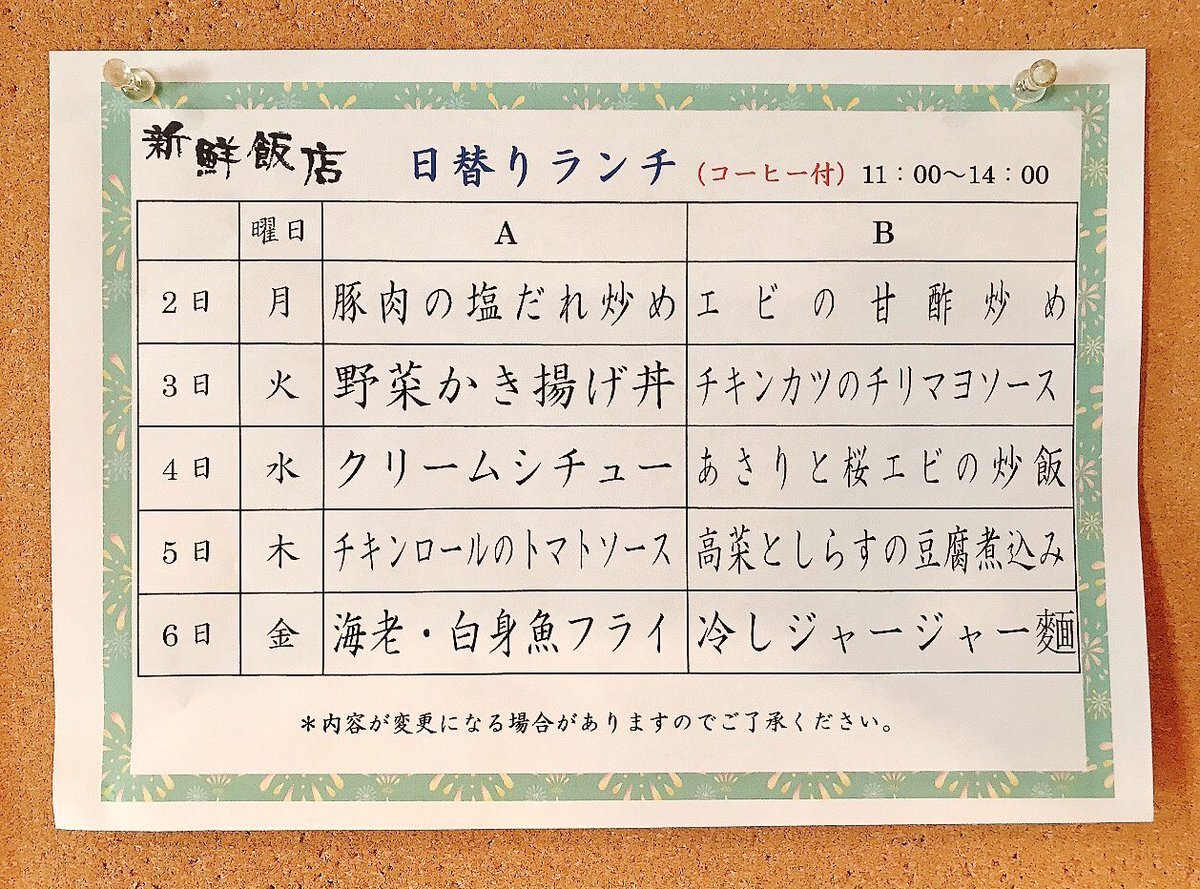 新鮮飯店 日替りランチ (コーヒー付) 11：00～14：00
曜日 A B
2日 月 豚肉の塩だれ炒め エビの甘酢炒め
3日 火 野菜かき揚げ丼 チキンカツのチリマヨソース
4日 水 クリームシチュー あさりと桜エビの炒飯
5日 木 チキンロールのトマトソース 高菜としらすの豆腐煮込み
6日 金 海老・白身魚フライ 冷しジャージャー麵
＊内容が変更になる場合がありますのでご了承ください。